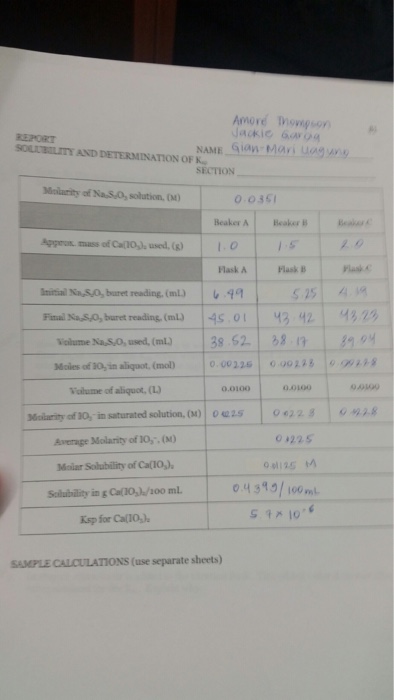 Amore Thompson
Jackie Garcia
REPORT
SOLUBILITY AND DETERMINATION OF Ksp NAME Gian-Mari
SECTION
Molarity of Na₂S₂O₃ solution, (M) 0.0351
Beaker A Beaker B Beaker C
Approx. mass of Ca(IO₃)₂ used, (g) 1.0 1.5 2.0
Flask A Flask B Flask C
Initial Na₂S₂O₃ buret reading, (mL) 6.49 5.25 4.19
Final Na₂S₂O₃ buret reading, (mL) 45.01 43.42 43.23
Volume Na₂S₂O₃ used, (mL) 38.52 38.17 39.04
Moles of IO₃⁻ in aliquot, (mol) 0.00223
Volume of aliquot, (L) 0.0100 0.0100 0.0100
Molarity of IO₃⁻ in saturated solution, (M)
Average Molarity of IO₃⁻, (M)
Molar Solubility of Ca(IO₃)₂
Solubility in g Ca(IO₃)₂/100 mL 0.439g/100mL
Ksp for Ca(IO₃)₂ 5.7 × 10⁻⁶
SAMPLE CALCULATIONS (use separate sheets)